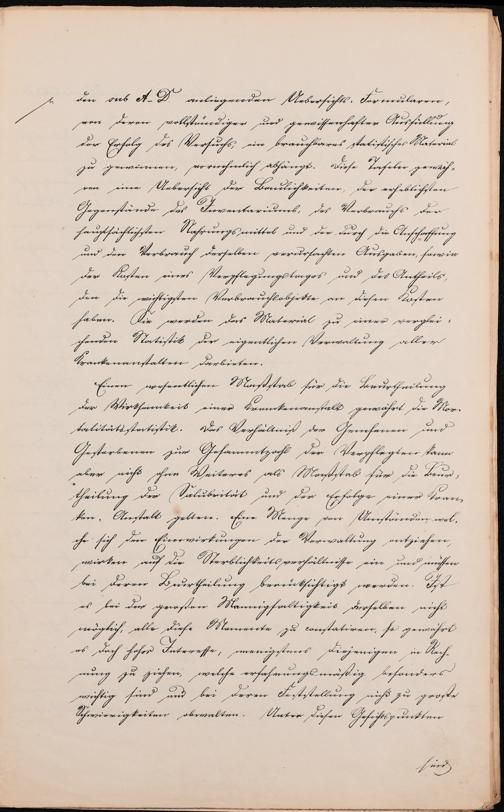 den sub A-D anliegenden Uebersichts-Formularen,
von deren vollständiger und gewissenhafter Ausfüllung
der Erfolg des Versuchs, ein brauchbares statistisches Material
zu gewinnen, vornehmlich abhängt. Diese Tafeln gewäh-
ren eine Uebersicht der Baulichkeiten, der erheblichsten
Gegenstände des Inventariums, des Verbrauchs der
hauptsächlichsten Nahrungsmittel und der durch die Anschaffung
und den Verbrauch derselben verursachten Ausgaben, sowie
der Kosten eines Verpflegungstages und des Antheils,
den die wichtigsten Verbrauchsobjekte an diesen Kosten
haben. Sie werden das Material zu einer verglei-
chenden Statistik der eigentlichen Verwaltung aller
Krankenanstalten darbieten.
Einen wesentlichen Maßstab für die Beurtheilung
der Wirksamkeit einer Krankenanstalt gewährt die Mor-
talitätsstatistik. Das Verhältniß der Genesenen und
Gestorbenen zur Gesammtzahl der Verpflegten kann
aber nicht ohne Weiteres als Maßstab für die Beur-
theilung der Salubrität und der Erfolge einer Kran-
ken-Anstalt gelten. Eine Menge von Umständen, wel-
che sich den Einwirkungen der Verwaltung entziehen,
wirken auf die Sterblichkeitsverhältnisse ein und müssen
bei deren Beurtheilung berücksichtigt werden. Ist
es bei der großen Mannigfaltigkeit derselben nicht
möglich, alle diese Momente zu constatiren, so gewährt
es doch hohes Interesse, wenigstens diejenigen in Rech-
nung zu ziehen, welche erfahrungsmäßig besonders
wichtig sind und bei deren Feststellung nicht zu große
Schwierigkeiten obwalten. Unter diesen Gesichtspunkten
sind